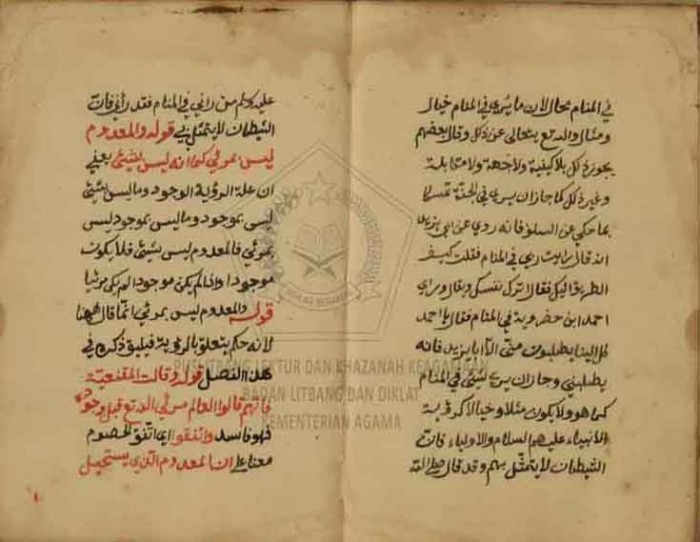 في المنام محال لان ما يرى في المنام خيال
ومثال والله تع يتعالى عن ذلك وقال بعضهم
يجوز ذلك بلا كيفية ولا جهة ولا مقابلة
وغير ذلك كما جاز ان يرى في الجنة تمسكا
بما حكي عن السلف فانه روي عن ابي يزيد
انه قال رايت ربي في المنام فقلت كيف
الطريق اليك فقال اترك نفسك وتعال وراي
احمد ابن خضروية في المنام فقال يا احمد
كل الناس يطلبون منى الا ابا يزيد فانه
يطلبني وجاز ان يرى شيئ في المنام
كما هو ولا يكون مثلا وخيالا كرؤية
الانبياء عليهم السلام والاولياء فان
الشيطان لا يتمثل بهم وقد قال صلى الله
عليه وسلم من راني في المنام فقد راني فان
الشيطان لا يتمثل بي قوله والمعدوم
ليس بمرئي كما انه ليس بشيئ يعني
ان علة الرؤية الوجود وما ليس بشيئ
ليس بموجود وما ليس بموجود ليس
بمرئي فالمعدوم ليس بشيئ فلا يكون
موجودا واذا لم يكن موجودا لم يكن مرئيا
قوله والمعدوم ليس بمرئي انما قال ههنا
لانه حكم يتعلق بالرؤية فيليق ذكره في
هذا الفصل قوله وقالت المقنعية
فانهم قالوا العالم مرئي الله تع قبل وجوده
فهو فاسد واتفقوا اى اتفق الخصوم
معنا على ان المعدوم الذي يستحيل
PUSLITBANG LEKTUR DAN KHAZANAH KEAGAMAAN
BADAN LITBANG DAN DIKLAT
KEMENTERIAN AGAMA